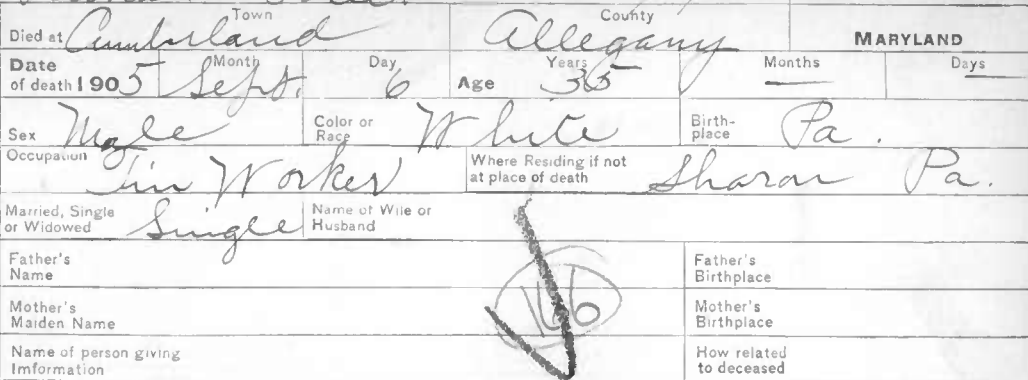 Died at Cumberland Town Allegany County MARYLAND
Date of death 1905 Month Sept. Day 6 Age Years 35 Months — Days —
Sex Male Color or Race White Birth-place Pa.
Occupation Tin Worker Where Residing if not at place of death Sharon Pa.
Married, Single or Widowed Single Name of Wife or Husband
Father's Name Father's Birthplace
Mother's Maiden Name Mother's Birthplace
Name of person giving Imformation How related to deceased
166